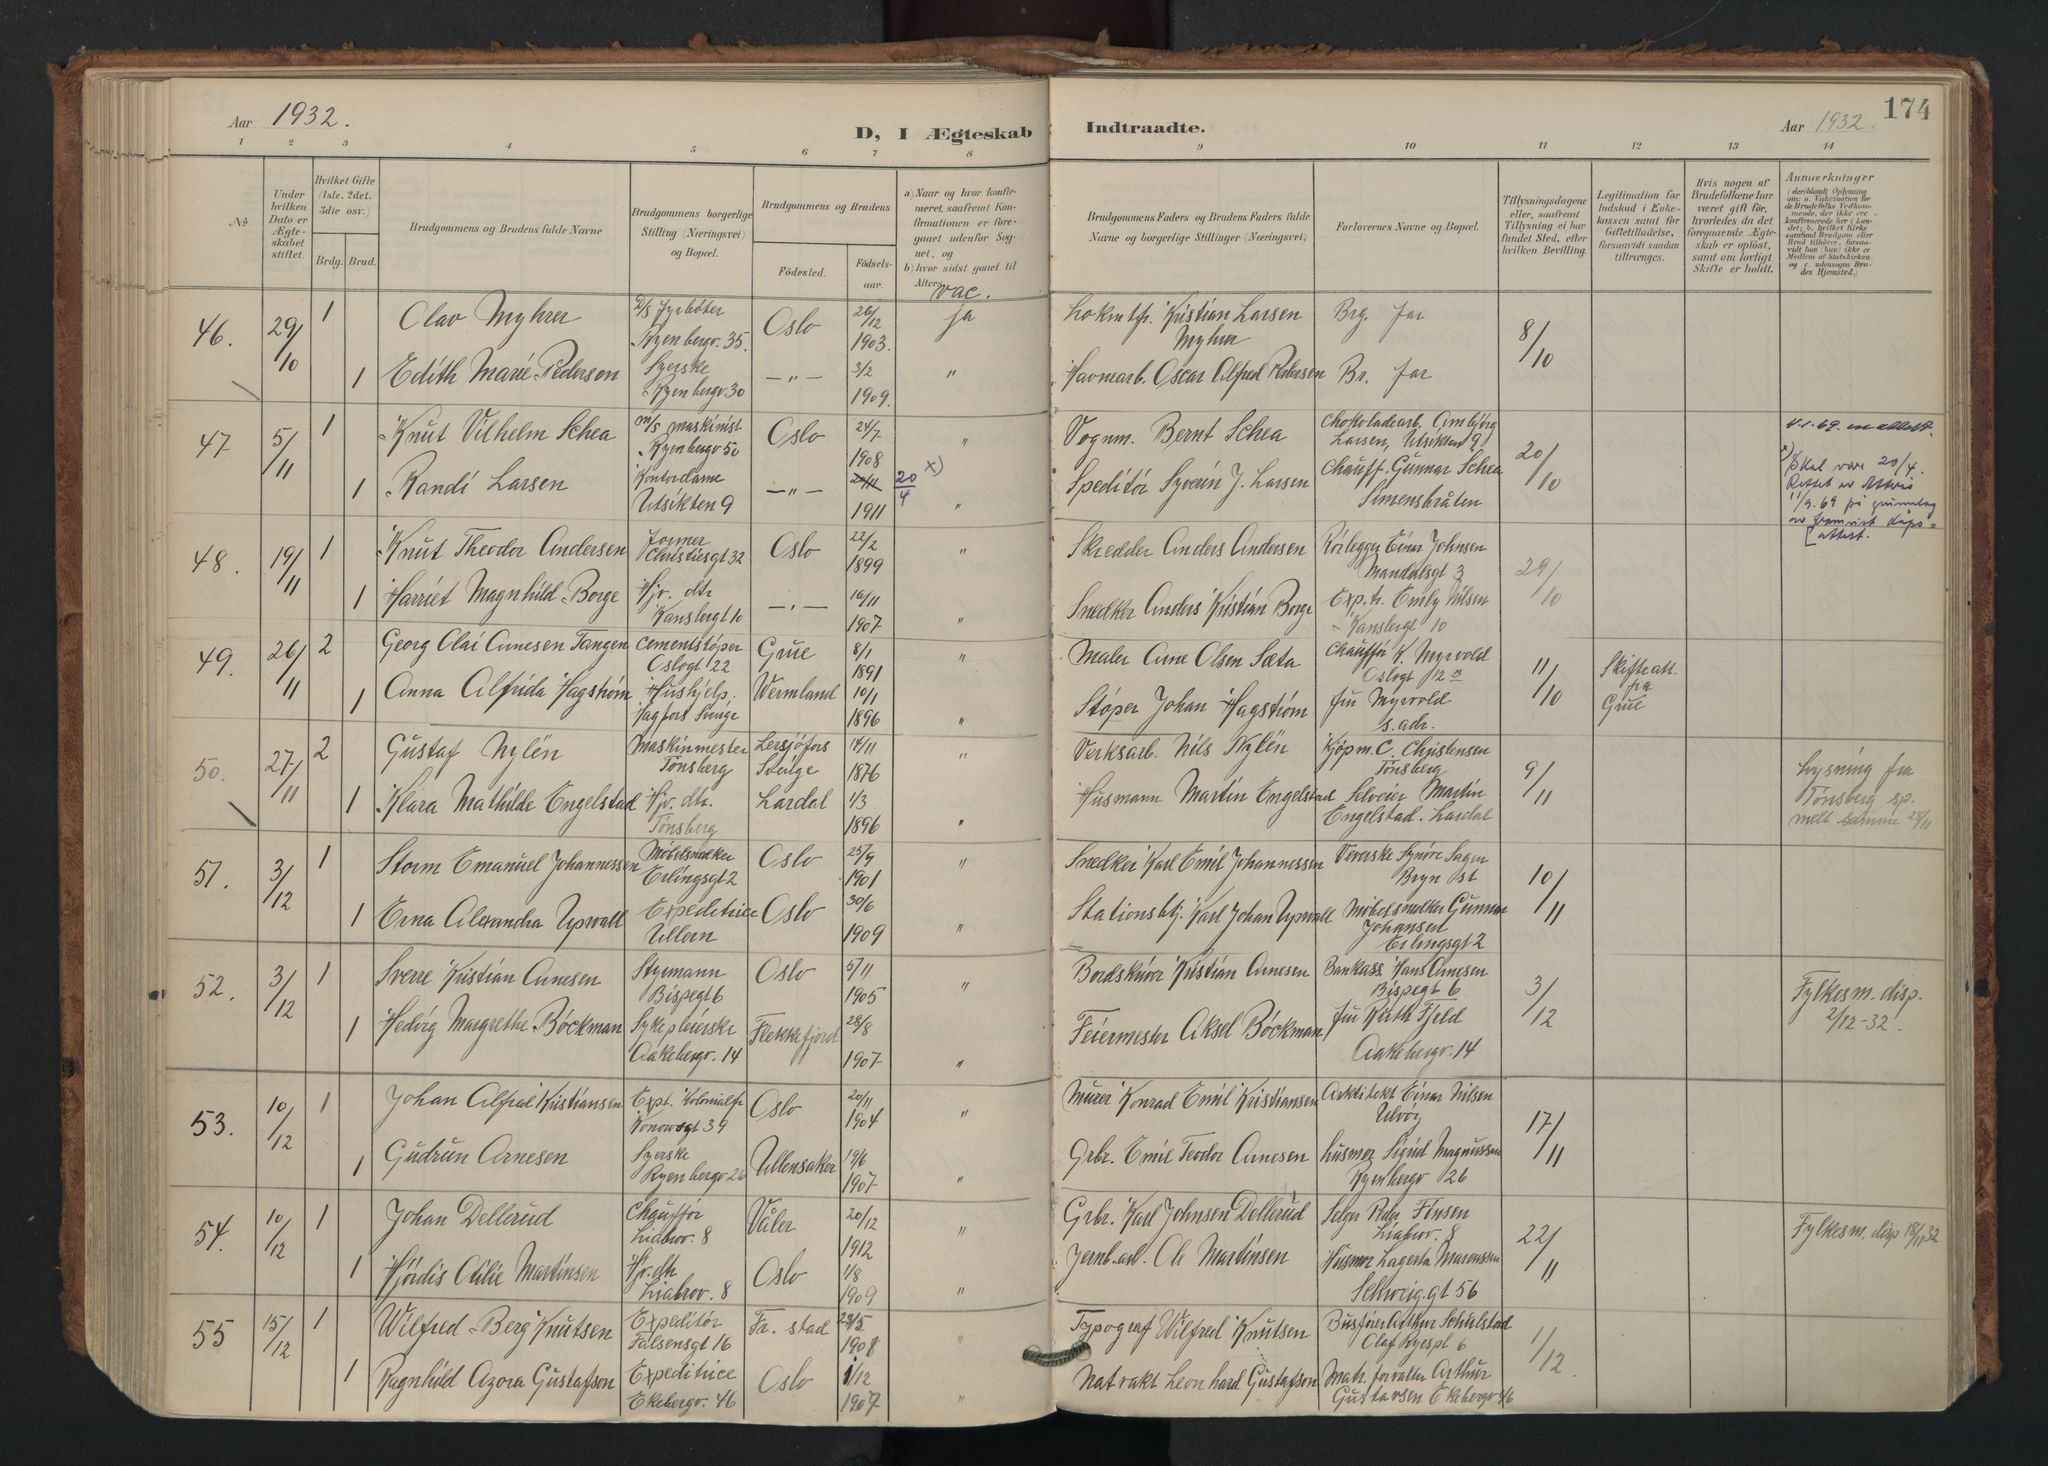 Aar 1932.
D, I Ægteskab
Indtraadte.
Aar 1932.
174
1 2 3 4 5 6 7 8 9 10 11 12 13 14
No
Under hvilken Dato er Ægteskabet stiftet.
Hvilket Gifte (1ste, 2det, 3die osv.)
Brdg. Brud.
Brudgommens og Brudens fulde Navne
Brudgommens borgerlige Stilling (Næringsvei) og Bopæl.
Brudgommens og Brudens
Födested.
Födselsaar.
a) Naar og hvor konfirmeret, saafremt Konfirmationen er foregaaet udenfor Sognet, og
b) hvor sidst gaaet til Alters.
vac.
Brudgommens Faders og Brudens Faders fulde Navne og borgerlige Stillinger (Næringsvei)
Forlovernes Navne og Bopæl.
Tillysningsdagene eller, saafremt Tillysning ei har fundet Sted, efter hvilken Bevilling.
Legitimation for Indskud i Enkekassen samt for Giftetilladelse, forsaavidt saadan tiltrænges.
Hvis nogen af Brudefolkene har været gift för, hvorledes da det foregaaende Ægteskab er oplöst, samt om lovligt Skifte er holdt.
Anmerkninger
46. 29/10 1 Olav Myhrer Ryenbergv. 35. Oslo 26/12 1903. ja Kristian Larsen Myhrer Brg. far 8/10
1 Edith Marie Pedersen Syerske Ryenbergv 30 —"— 3/2 1909. " Havnearb. Oscar Alfred Pedersen Br. far
47 5/11 1 Knut Vilhelm Schea m/s maskinist Ryenbergv 50 Oslo 24/7 1908 " Vognm. Bernt Schea Chokoladearb. Ambjørg Larsen, Utsikten 9 20/10
1 Randi Larsen Kontordame Utsikten 9 —"— 20/11 20/4 x) 1911 " Speditør Syverin J. Larsen Chauff. Gunnar Schea Simensbråten
x) Skal være 20/4. Rettet av 11/9.69 på grunnlag av fremvist dåpsattest.
48. 19/11 1 Knut Theodor Andersen Former Christiesgt 32 Oslo 22/2 1899 " Skredder Anders Andersen Rørlegger Einar Johnsen Mandalsgt 3 29/10
1 Harriet Magnhild Borge Hjv. dtr. Kansbergt 10 —"— 10/11 1907 " Snedker Anders Kristian Borge Exp.tr. Emily Nilsen Kansbergt 10
49. 26/11 2 Georg Olai Arnesen Tangen Cementstøper Oslogt 22 Grue 8/1 1891 " Maler Arne Olsen Sæta Chauffør K. Myrvold Oslogt 12 11/10 Skifteatt. fra Grue
1 Anna Alfrida Hagstrøm Hushjelp. Hagfors Sverige Wermland 10/1 1896 " Støper Johan Hagstrøm fru Myrvold s. adr.
50. 27/11 2 Gustaf Nylén Maskinmester Tønsberg Lersjöfors Sverige 14/11 1876 " Verksarb. Nils Nylén Kjøpm. C. Christensen Tønsberg 9/11 Lysning fra Tønsberg sp. melt samme 28/11
1 Klara Mathilde Engelstad Hjv. dtr. Tønsberg Lardal 1/3 1896 " Husmann Martin Engelstad Selveier Martin Engelstad. Lardal
51. 3/12 1 Storm Emanuel Johannessen Møbelsnedker Erlingsgt 2 Oslo 25/9 1901 " Snedker Karl Emil Johannessen Veverske Synøve Sagen Bryn st 10/11
1 Erna Alexandra Upwall Expeditrice Ullern Oslo 30/6 1909 " Stationsbtj. Karl Johan Upwall Møbelsnedker Gunnar Johansen Erlingsgt 2
52. 3/12 1 Sverre Kristian Arnesen Styrmann Bispegt 6 Oslo 5/11 1905 " Bordskriver Kristian Arnesen Bankass. Hans Arnesen Bispegt 6 3/12 Fylkesm. disp. 2/12-32.
1 Hedvig Margrethe Böckman Sykepleierske Aakebergv. 14 Flekkefjord 28/8 1907 " Feiermester Aksel Böckman fru Ruth Fjeld Aakebergv. 14
53. 10/12 1 Johan Alfred Kristiansen Exp. Kolonialfr. Konowsgt 39 Oslo 20/11 1904 " Murer Konrad Emil Kristiansen Arkitekt Einar Nilsen Ulvøy 17/11
1 Gudrun Arnesen Syerske Ryenbergv 26 Ullensaker 19/6 1907 " Grbr. Emil Teodor Arnesen husmor Sigrid Magnussen Ryenbergv 26
54. 10/12 1 Johan Dellerud Chauffør Liabrov. 8 Våler 20/12 1912 " Grbr. Karl Johnsen Dellerud Selger Finsen Liabrov. 8 22/11 Fylkesm. disp 18/11 32
1 Hjørdis Otilie Martinsen Hjv. dtr. Liabrov. 8 Oslo 1/8 1909 " Jernb.arb. Ole Martinsen Husmor Lagerta Martinsen Schweig.gt 56
55 15/12 1 Wilfred Berg Knutsen Expeditør Falsensgt 16 Fr. stad 28/5 1908 " Typograf Wilfred Knutsen Busfører Arthur Schulstad Olaf Ryespl 6 1/12
1 Ragnhild Azora Gustafson Expeditrice Ekebergv. 46 Oslo 1/12 1907 " Natvakt Leonhard Gustafson Mat. forvalter Arthur Gustavsen Ekebergv 46